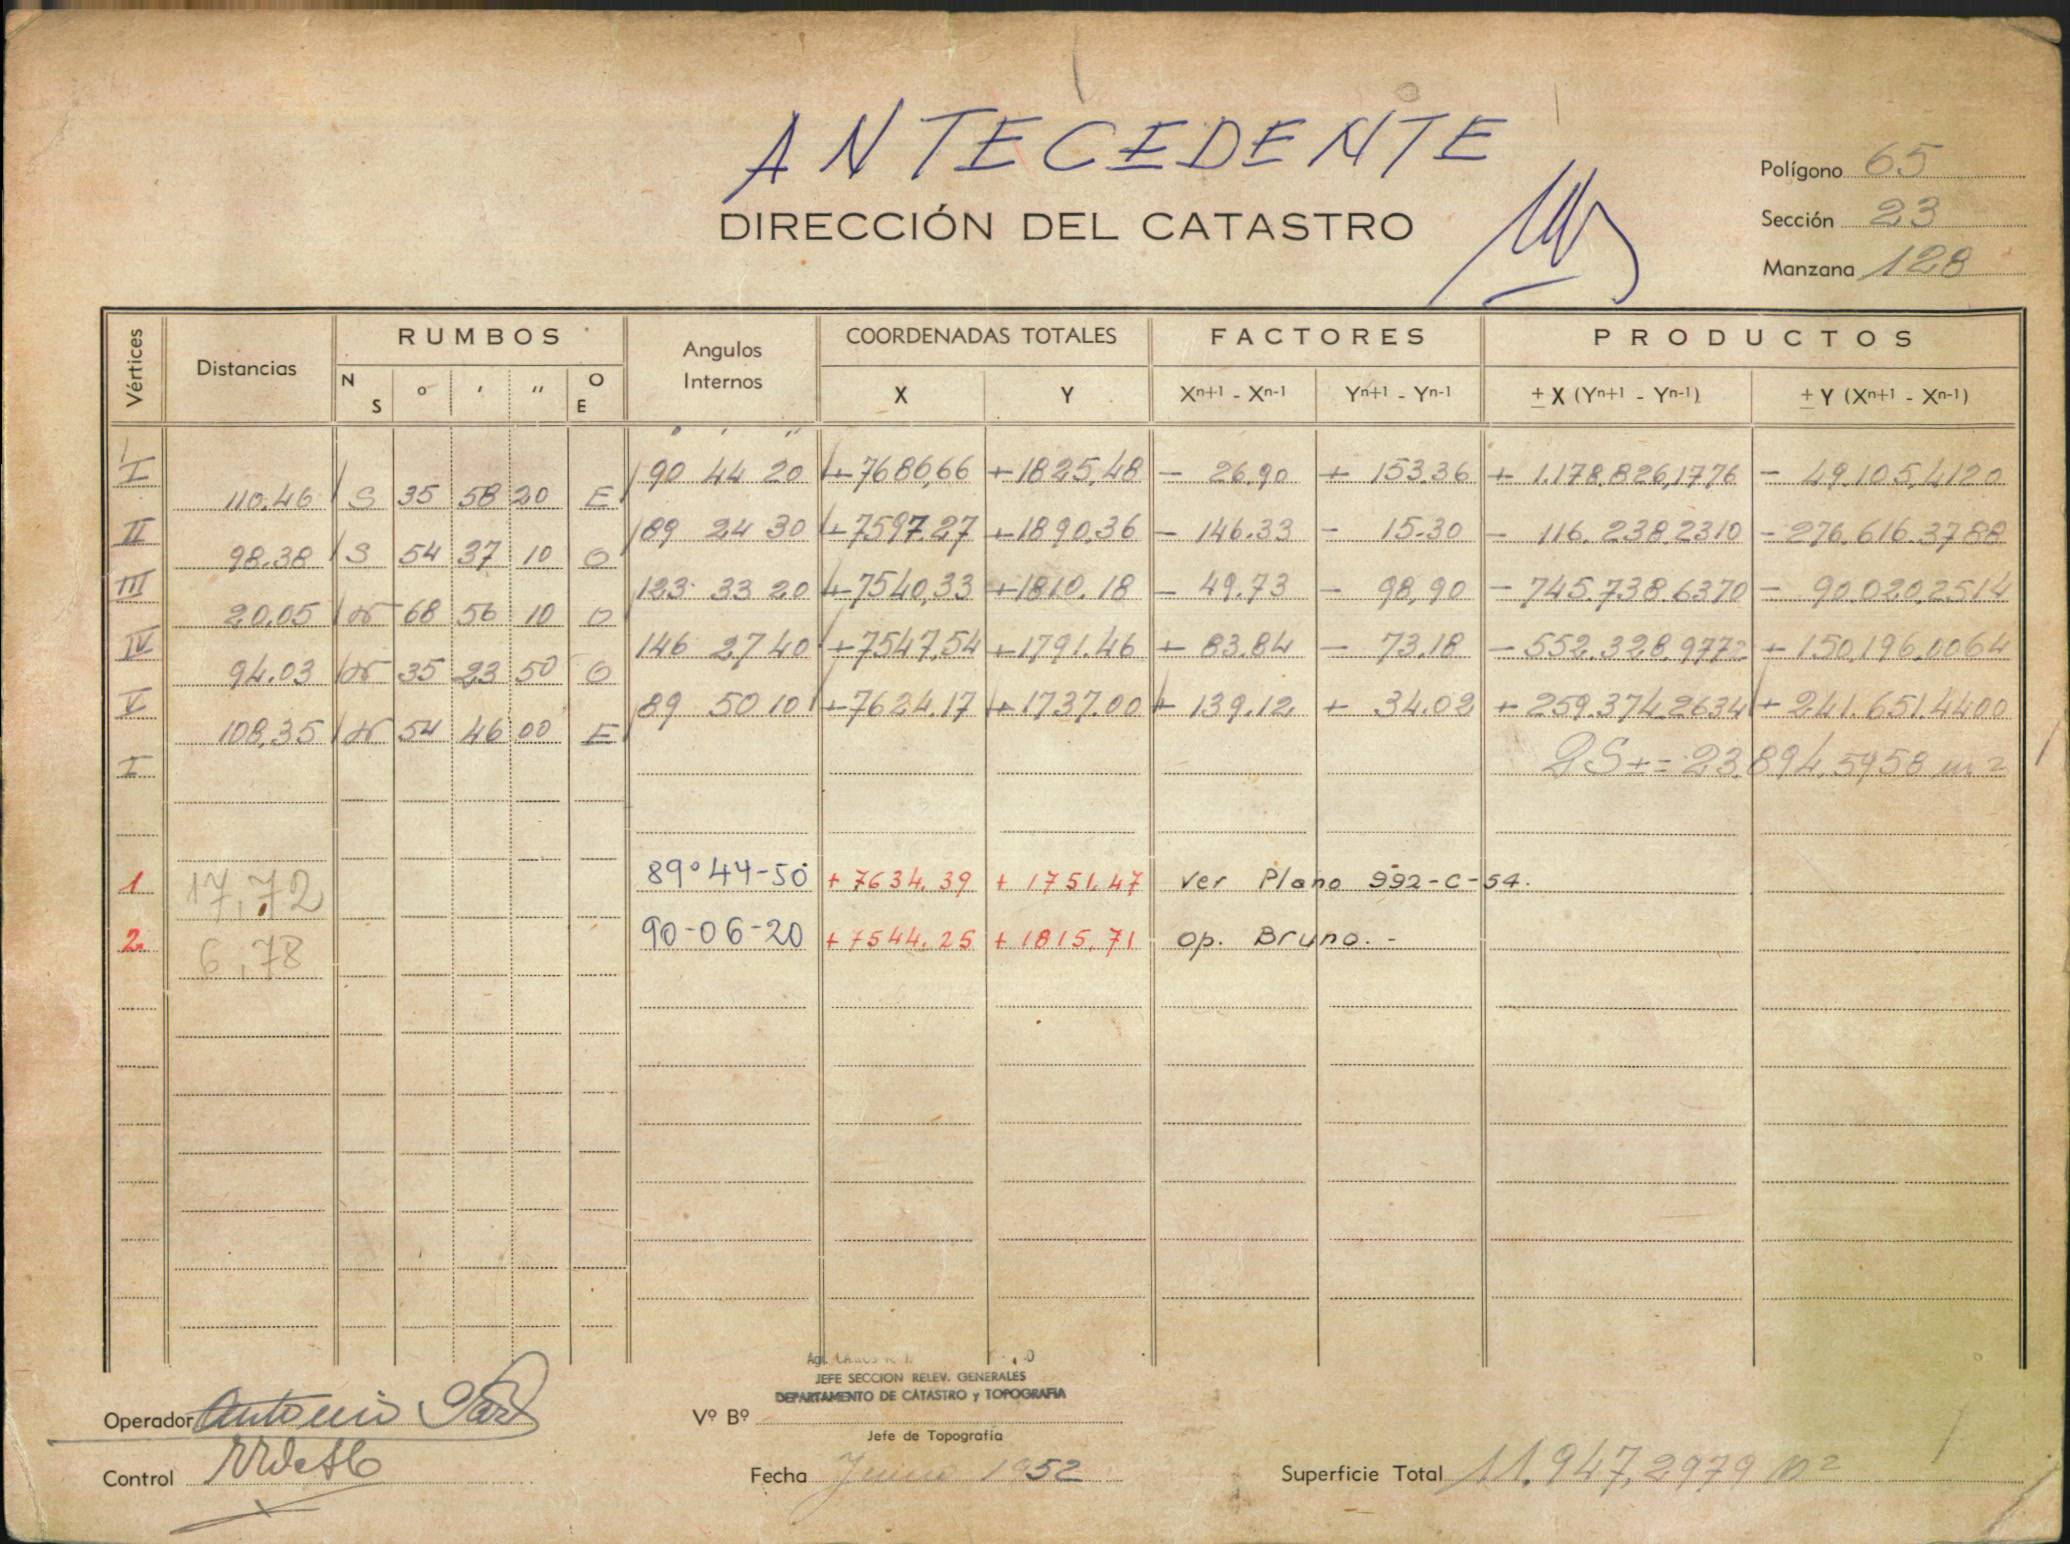 ANTECEDENTE
DIRECCIÓN DEL CATASTRO
Polígono 65
Sección 23
Manzana 128
Vértices Distancias RUMBOS Angulos Internos COORDENADAS TOTALES FACTORES PRODUCTOS
N S o ' " O E X Y Xn+1 - Xn-1 Yn+1 - Yn-1 ± X (Yn+1 - Yn-1) ± Y (Xn+1 - Xn-1)
I 90 44 20 +7686,66 +1825,48 - 26.90 + 153.36 + 1.178.826,1776 - 49.105,4120
110.46 S 35 58 20 E
II 89 24 30 +7597.27 +1890,36 - 146.33 - 15.30 - 116.238.2310 - 276.616.3788
98.38 S 54 37 10 O
III 123 33 20 +7540,33 +1810.18 - 49.73 - 98,90 - 745.738.6370 - 90.020,2514
20,05 N 68 56 10 O
IV 146 27 40 +7547,54 +1791.46 + 83.84 - 73.18 - 552.328,9772 + 150,196,0064
94.03 N 35 23 50 O
V 89 50 10 +7624.17 +1737.00 + 139.12 + 34.02 + 259.374.2634 + 241.651.4400
108,35 N 54 46 00 E
I 2S+= 23.894,5958 m2
1 89°44-50 + 7634.39 + 1751.47 ver Plano 992-C-54.
17,72
2 90-06-20 + 7544.25 + 1815,71 op. Bruno.-
6,78
JEFE SECCION RELEV. GENERALES
DEPARTAMENTO DE CATASTRO y TOPOGRAFIA
Operador Antonio
Vº Bº
Jefe de Topografía
Control
Fecha 1952
Superficie Total 11.947,2979 m2